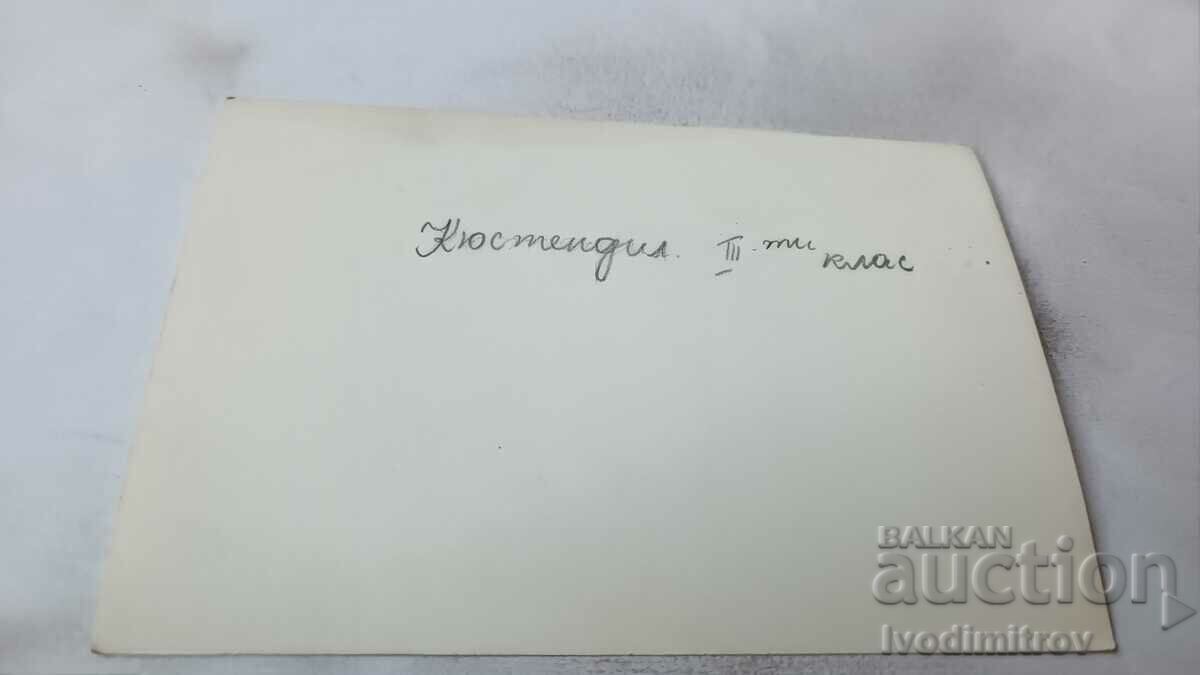 Кюстендил. III-ти клас
BALKAN
auction
Ivodimitrov